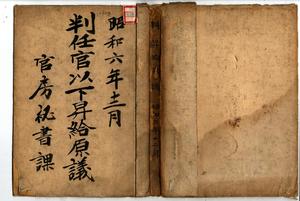 昭和六年十二月
判任官以下昇給原議
官房秘書課